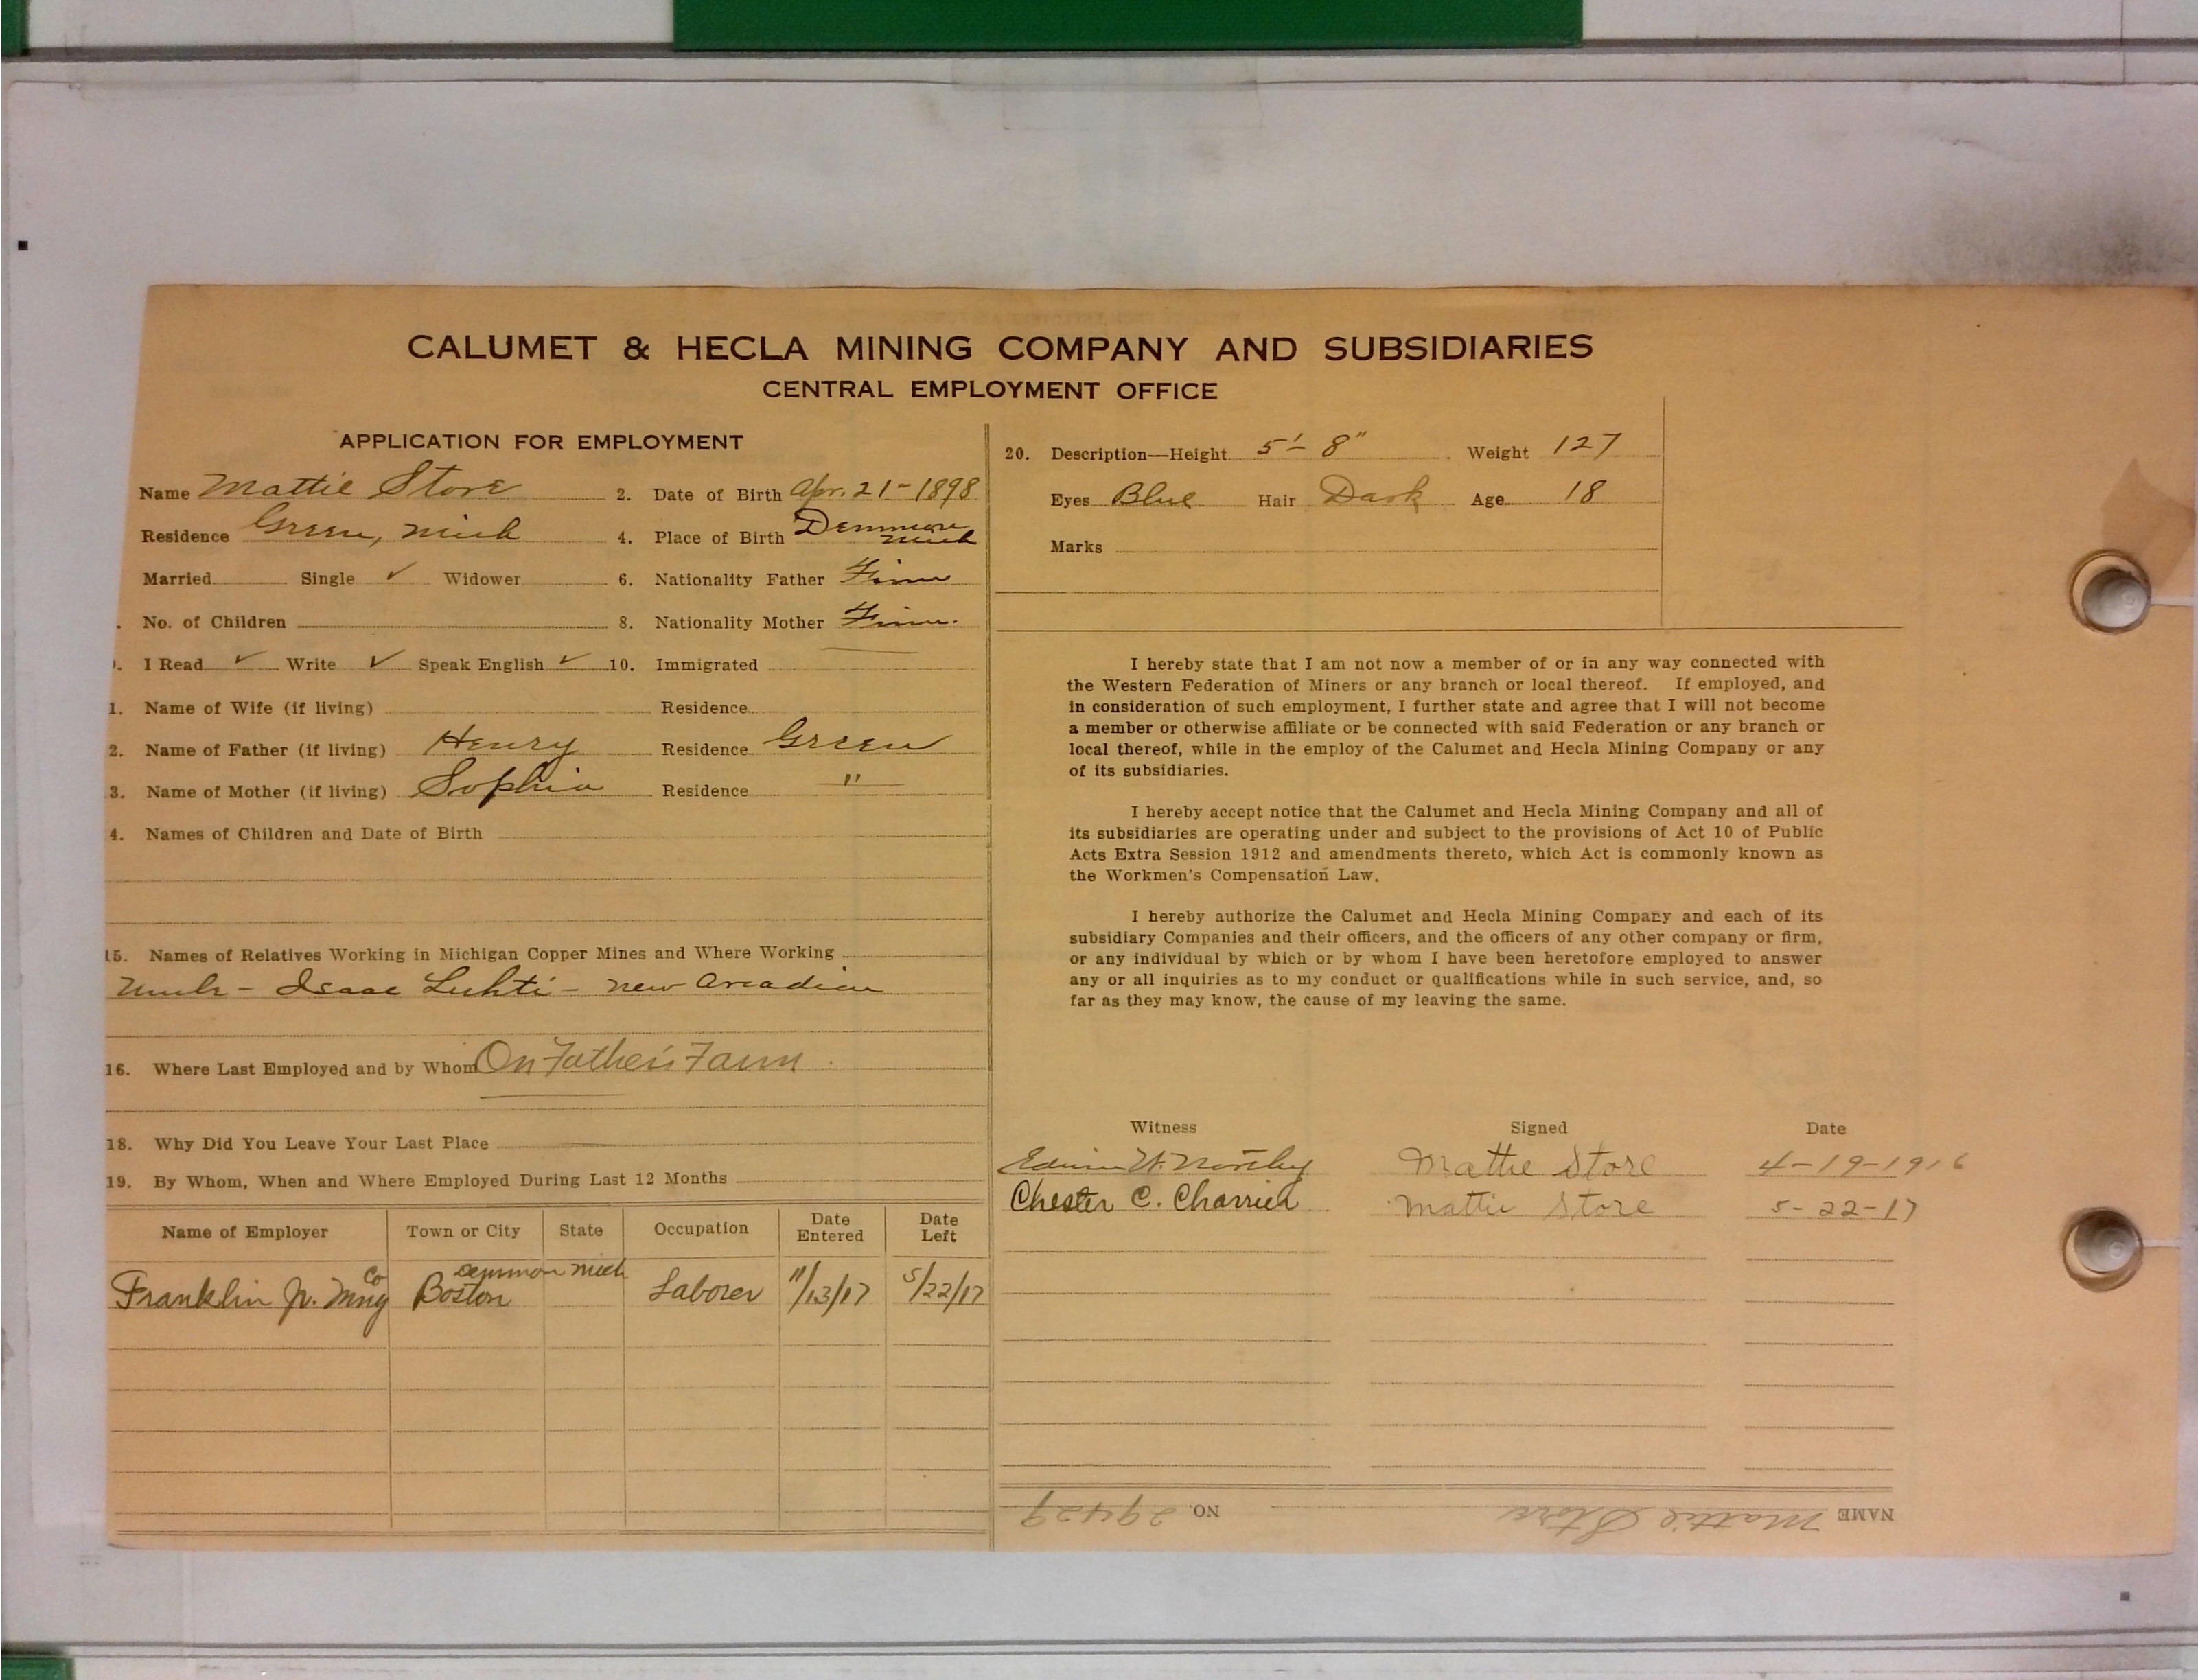 CALUMET & HECLA MINING COMPANY AND SUBSIDIARIES
CENTRAL EMPLOYMENT OFFICE
APPLICATION FOR EMPLOYMENT
Name Mattie Store 2. Date of Birth Apr. 21-1898
Residence Green, Mich 4. Place of Birth Demmon Mich
Married Single ✓ Widower 6. Nationality Father Finn
. No. of Children 8. Nationality Mother Finn.
. I Read ✓ Write ✓ Speak English ✓ 10. Immigrated
1. Name of Wife (if living) Residence
2. Name of Father (if living) Henry Residence Green
3. Name of Mother (if living) Sophia Residence "
4. Names of Children and Date of Birth
15. Names of Relatives Working in Michigan Copper Mines and Where Working
Uncle - Isaac Luhti - New Arcadian
16. Where Last Employed and by Whom On Father's Farm
18. Why Did You Leave Your Last Place
19. By Whom, When and Where Employed During Last 12 Months
Name of Employer Town or City State Occupation Date Entered Date Left
Franklin Jr. Mng Co Boston Demmon Mich Laborer 11/13/17 5/22/17
20. Description—Height 5'- 8" Weight 127
Eyes Blue Hair Dark Age 18
Marks
I hereby state that I am not now a member of or in any way connected with
the Western Federation of Miners or any branch or local thereof. If employed, and
in consideration of such employment, I further state and agree that I will not become
a member or otherwise affiliate or be connected with said Federation or any branch or
local thereof, while in the employ of the Calumet and Hecla Mining Company or any
of its subsidiaries.
I hereby accept notice that the Calumet and Hecla Mining Company and all of
its subsidiaries are operating under and subject to the provisions of Act 10 of Public
Acts Extra Session 1912 and amendments thereto, which Act is commonly known as
the Workmen's Compensation Law.
I hereby authorize the Calumet and Hecla Mining Company and each of its
subsidiary Companies and their officers, and the officers of any other company or firm,
or any individual by which or by whom I have been heretofore employed to answer
any or all inquiries as to my conduct or qualifications while in such service, and, so
far as they may know, the cause of my leaving the same.
Witness Signed Date
Edwin W. Mattie Store 4-19-1916
Chester C. Mattie Store 5-22-17
NAME Mattie Store NO. 29429